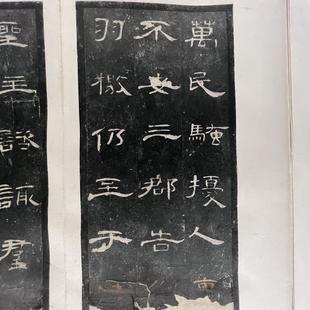 萬民騷擾人
不安三郡告
羽檄仍至于
聖主諮諏羣